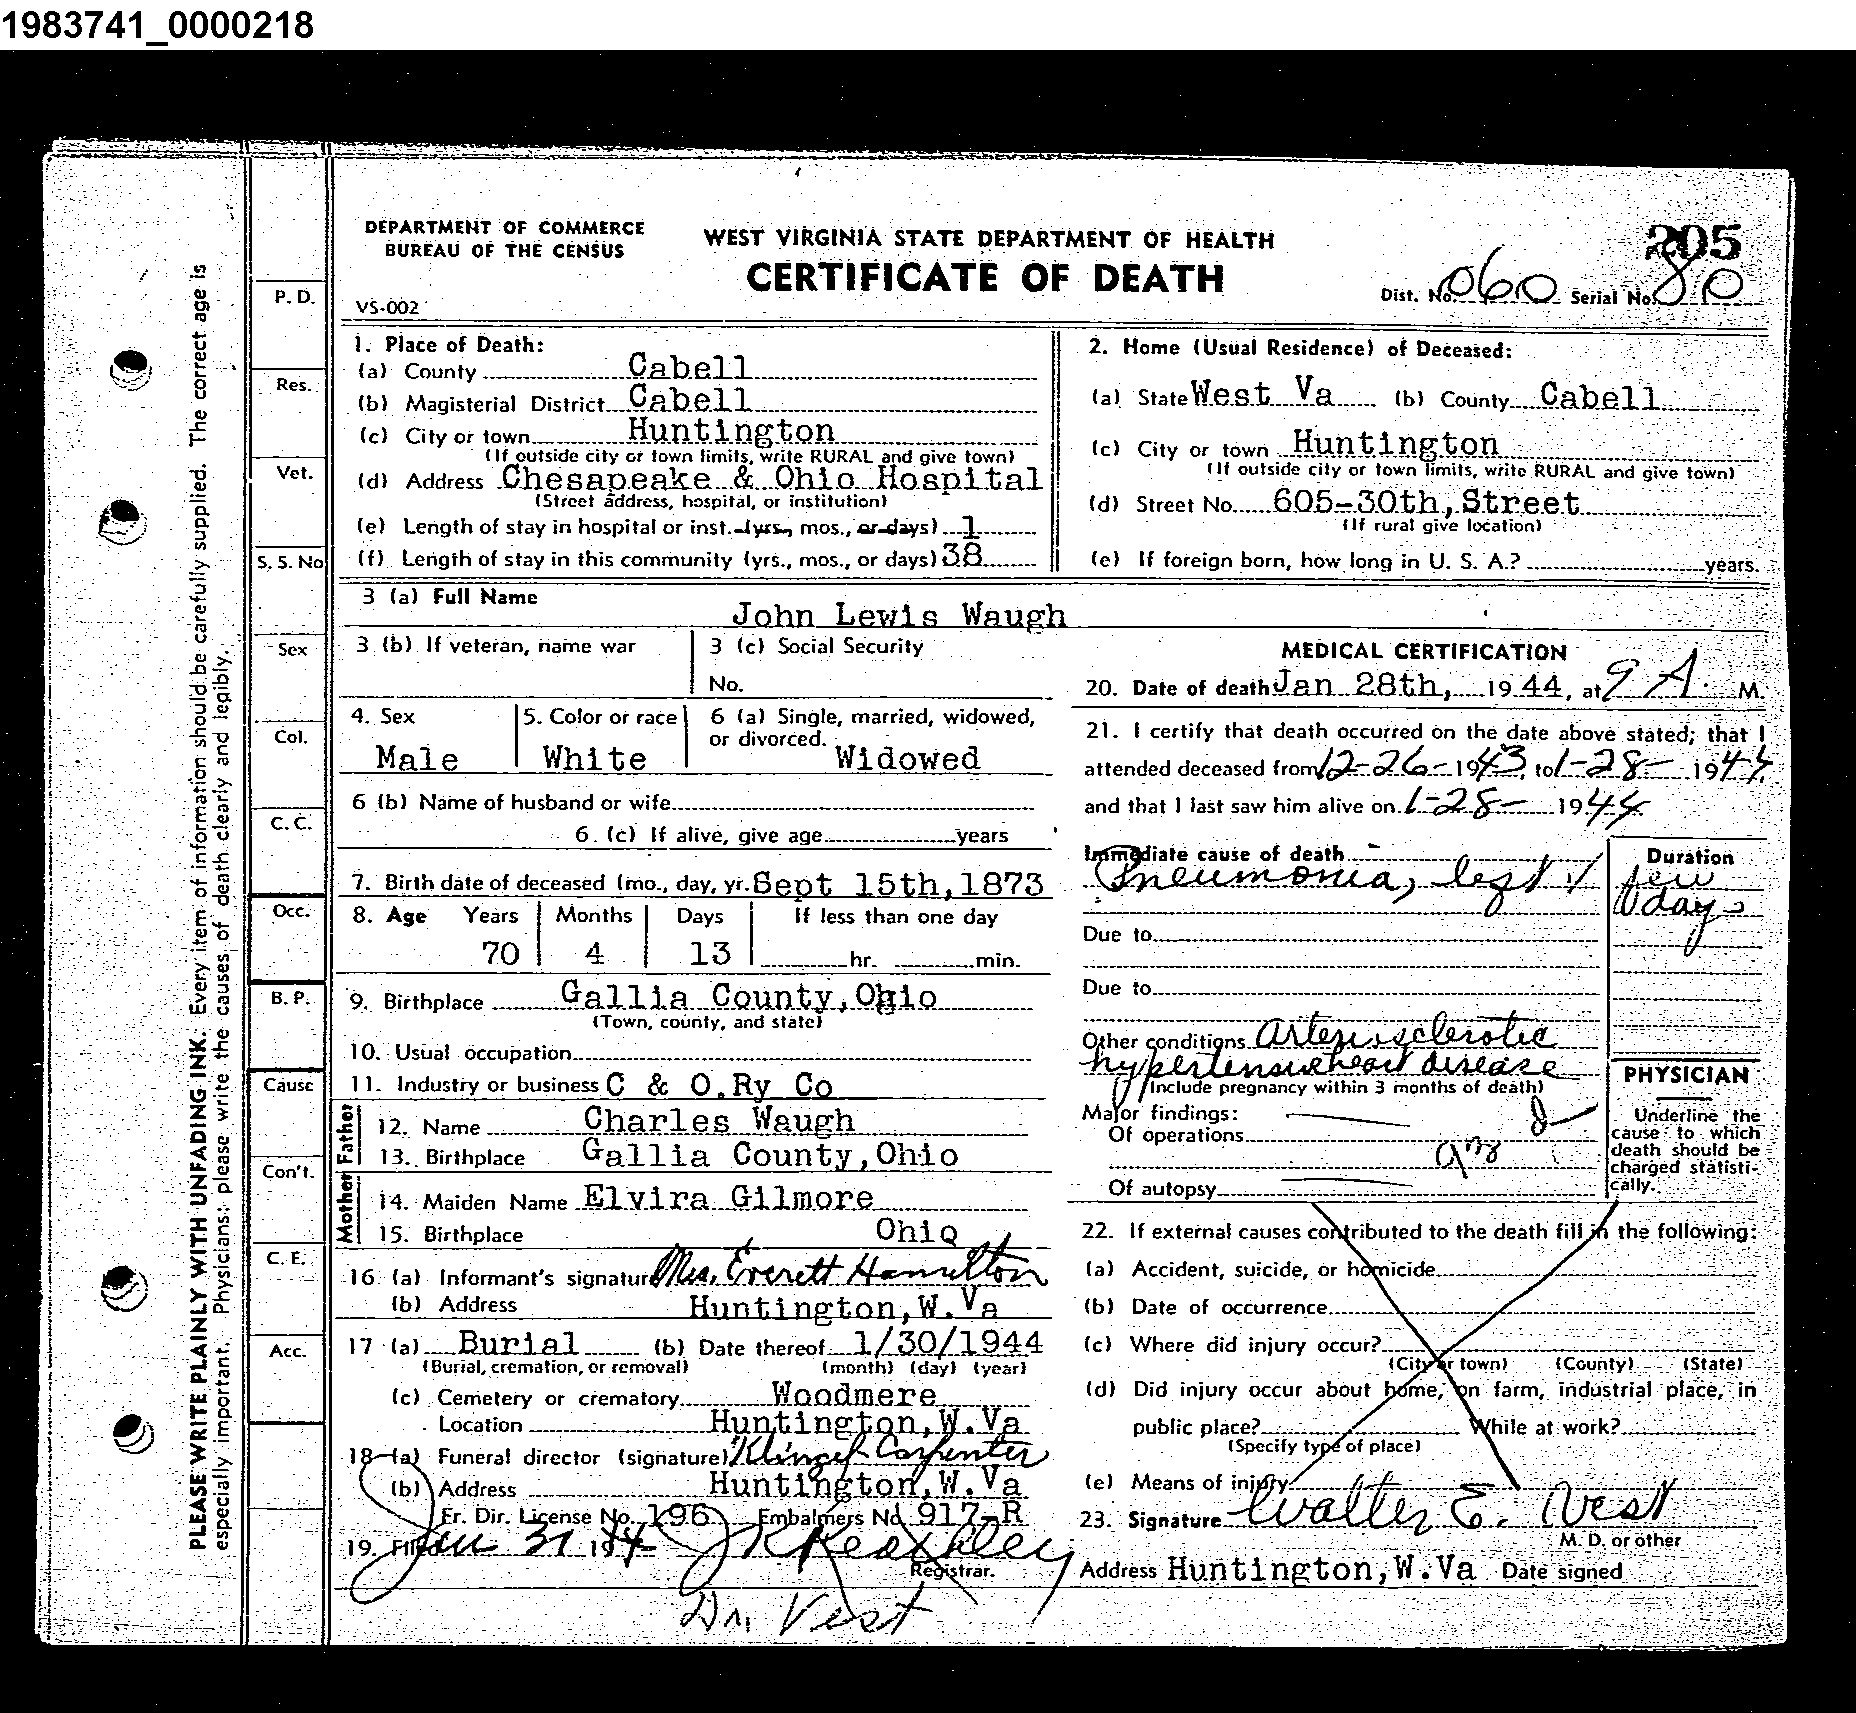 1983741_0000218
DEPARTMENT OF COMMERCE
BUREAU OF THE CENSUS
VS-002
WEST VIRGINIA STATE DEPARTMENT OF HEALTH
CERTIFICATE OF DEATH
205
Dist. No. 060 Serial No. 80
PLEASE WRITE PLAINLY WITH UNFADING INK. Every item of information should be carefully supplied. The correct age is
especially important. Physicians: please write the causes of death clearly and legibly.
P. D.
Res.
Vet.
S. S. No
Sex
Col.
C. C.
Occ.
B. P.
Cause
Con't.
C. E.
Acc.
1. Place of Death:
(a) County Cabell
(b) Magisterial District Cabell
(c) City or town Huntington
(If outside city or town limits, write RURAL and give town)
(d) Address Chesapeake & Ohio Hospital
(Street address, hospital, or institution)
(e) Length of stay in hospital or inst. (yrs., mos., or days) 1
(f) Length of stay in this community (yrs., mos., or days) 38
2. Home (Usual Residence) of Deceased:
(a) State West Va (b) County Cabell
(c) City or town Huntington
(If outside city or town limits, write RURAL and give town)
(d) Street No. 605-30th, Street
(If rural give location)
(e) If foreign born, how long in U. S. A.? years.
3 (a) Full Name
John Lewis Waugh
3 (b) If veteran, name war
3 (c) Social Security
No.
4. Sex
Male
5. Color or race
White
6 (a) Single, married, widowed,
or divorced. Widowed
6 (b) Name of husband or wife
6 (c) If alive, give age years
7. Birth date of deceased (mo., day, yr. Sept 15th, 1873
8. Age Years Months Days If less than one day
70 4 13 hr. min.
9. Birthplace Gallia County, Ohio
(Town, county, and state)
10. Usual occupation
11. Industry or business C & O.Ry Co
Father
12. Name Charles Waugh
13. Birthplace Gallia County, Ohio
Mother
14. Maiden Name Elvira Gilmore
15. Birthplace Ohio
16 (a) Informant's signature Mrs. Everett Hamilton
(b) Address Huntington, W.Va
17 (a) Burial (b) Date thereof 1/30/1944
(Burial, cremation, or removal) (month) (day) (year)
(c) Cemetery or crematory Woodmere
Location Huntington, W.Va
18 (a) Funeral director (signature) Klingel-Carpenter
(b) Address Huntington, W.Va
Fr. Dir. License No. 196 Embalmers No 917-R
19. Filed Jan 31 1944
Registrar.
Dr. Vest
MEDICAL CERTIFICATION
20. Date of death Jan 28th, 1944, at 9 A. M.
21. I certify that death occurred on the date above stated; that I
attended deceased from 12-26-1943, to 1-28- 1944
and that I last saw him alive on 1-28- 1944
Immediate cause of death
Pneumonia,
Duration
few
days
Due to
Due to
Other conditions Arteriosclerotic
hypertensive heart disease
(Include pregnancy within 3 months of death)
Major findings:
Of operations
Of autopsy
PHYSICIAN
Underline the
cause to which
death should be
charged statisti-
cally.
22. If external causes contributed to the death fill in the following:
(a) Accident, suicide, or homicide
(b) Date of occurrence
(c) Where did injury occur?
(City or town) (County) (State)
(d) Did injury occur about home, on farm, industrial place, in
public place? While at work?
(Specify type of place)
(e) Means of injury
23. Signature Walter E. Vest
M. D. or other
Address Huntington, W.Va Date signed